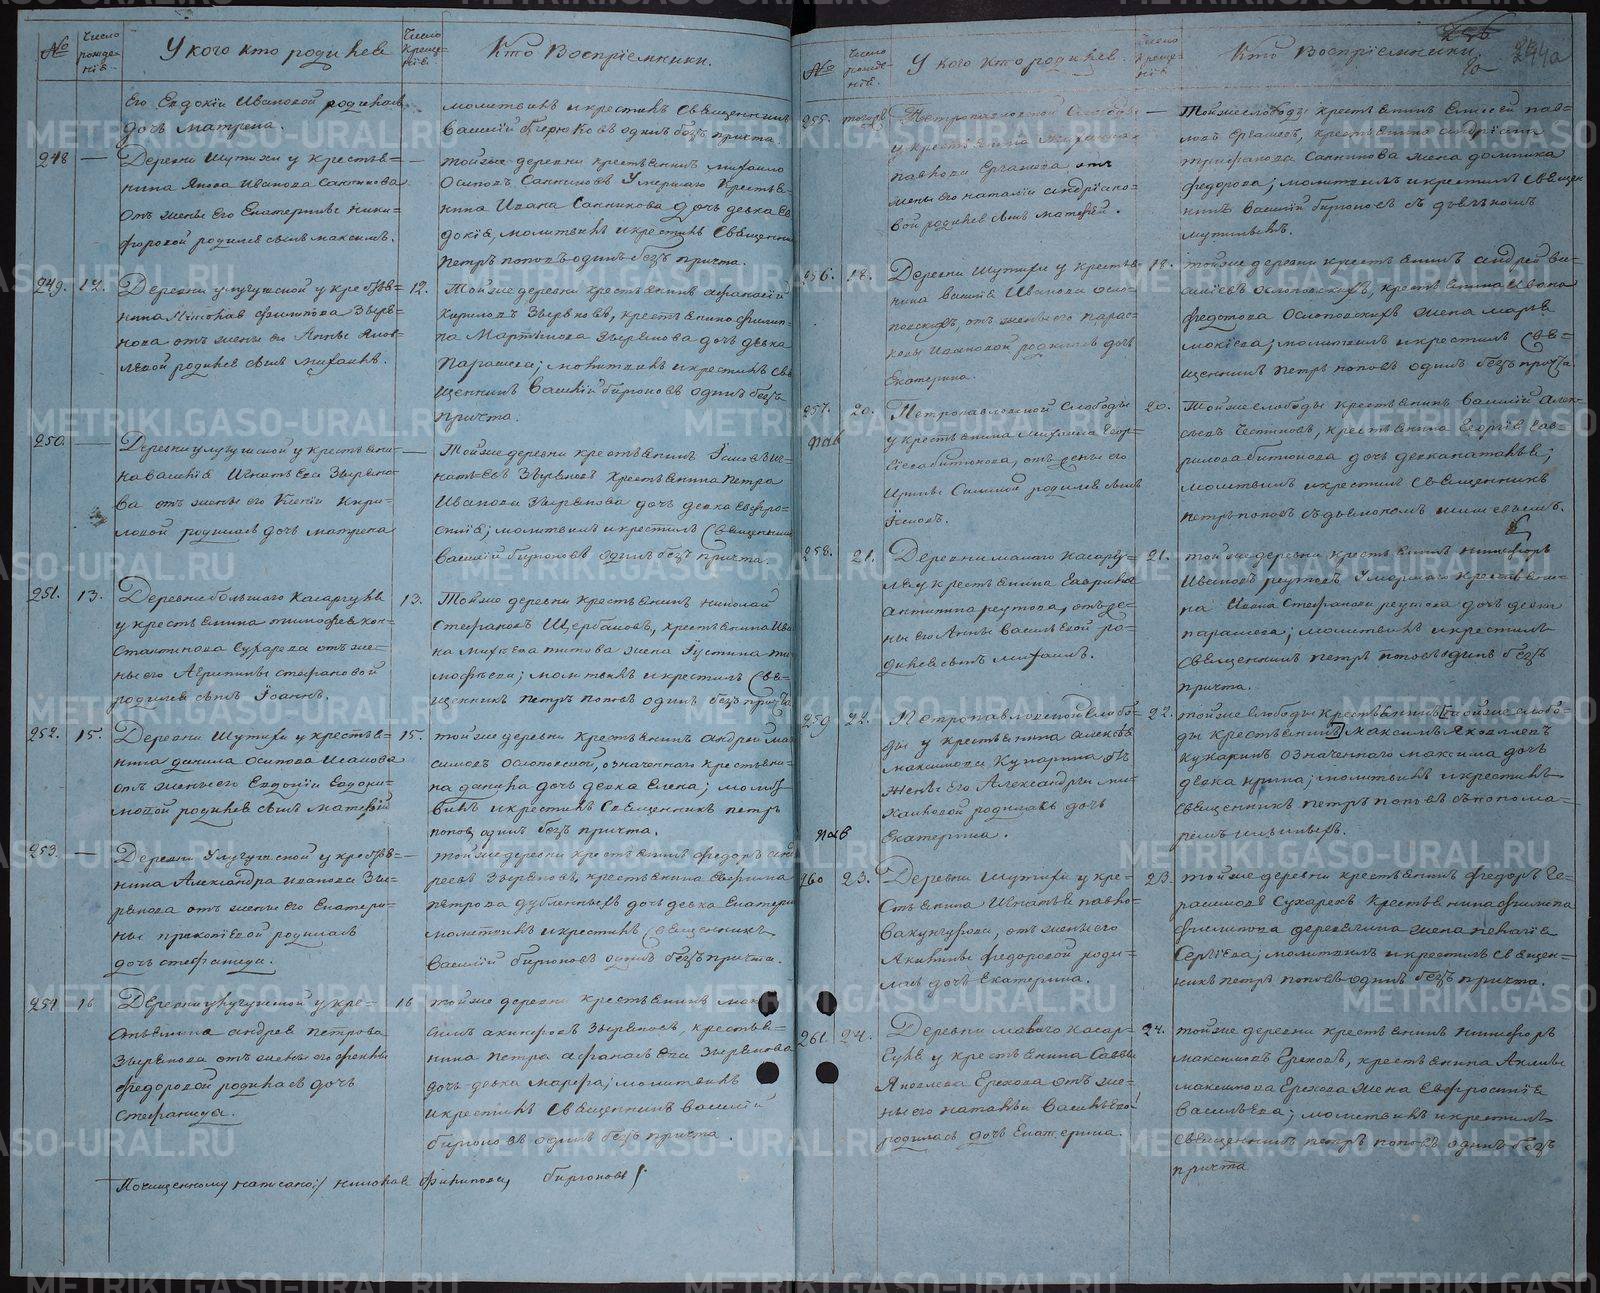 № Число рожденія. У кого кто родился Число крещенія. Кто Воспріемники.
его Евдокіи Ивановой родилась
дочь Матрена.
молитвилъ и крестилъ Священникъ
Василій Бирюковъ одинъ безъ причта.
248 — Деревни Шутихи у крестья=
нина Якова Иванова Санникова
отъ жены его Екатерины Ники=
форовой родился сынъ Максимъ.
— тойже деревни крестьянинъ Михайло
Осиповъ Санниковъ Умершаго Крестья=
нина Ивана Санникова дочь девка Ев
докія, молитвилъ и крестилъ Священни
Петръ Поповъ одинъ безъ причта.
249. 12. Деревни улугушской у крестья=
нина Николая Филипова Зыря=
нова отъ жены его Анны Яков=
левой родился сынъ Михаилъ.
12. Тойже деревни крестьянинъ Афанасій
Кириловъ Зыряновъ, крестьянина Филип=
па Мартинова Зырянова дочь девка
Парасковья; молитвилъ и крестилъ Свя
щенникъ Василій Бирюковъ одинъ безъ
причта.
250. — Деревни улугушской у крестьяни=
на Василія Игнатьева Зыряно=
ва отъ жены его Ксеніи Кири=
ловой родилась дочь Матрена
— Тойже деревни крестьянинъ Яковъ Иг=
натьевъ Зыряновъ крестьянина Петра
Иванова Зырянова дочь девка Евфро=
синія; молитвилъ и крестилъ Священникъ
Василій Бирюковъ одинъ безъ причта.
251. 13. Деревни большаго Касаргуля
у крестьянина Тимофея Кон=
стантинова Сухарева отъ же=
ны его Агрипины Стефановой
родился сынъ Іоаннъ.
13. Тойже деревни крестьянинъ Николай
Стефановъ Щербаковъ, крестьянина Ива
на Михеева Титова жена Густина Ти
мофеева; молитвилъ и крестилъ Свя=
щенникъ Петръ Поповъ одинъ безъ причта
252. 15. Деревни Шутихи у крестья=
нина Данила Осипова Исакова
отъ жены его Евдокіи Евдоки=
мовой родился сынъ Матвей
15. тойже деревни крестьянинъ Андрей Мак
симовъ Ослоповской, означеннаго крестьяни=
на Данила дочь девка Елена; молит
вилъ и крестилъ Священникъ Петръ
Поповъ одинъ безъ причта.
253. — Деревни Улугушской у крестья=
нина Александра Иванова Зы=
рянова отъ жены его Екатери=
ны Прокопіевой родилась
дочь Стефанида.
— тойже деревни крестьянинъ Федоръ Анд
реевъ Зыряновъ, крестьянина Евфима
Петрова Дубленныхъ дочь девка Екатери
молитвилъ и крестилъ Священникъ
Василій Бирюковъ одинъ безъ причта.
254 16 Деревни улугушской у кре=
стьянина Андрея Петрова
Зырянова отъ жены его Феклы
Федоровой родилась дочь
Стефанида.
16 тойже деревни крестьянинъ Мак
симъ Акинфовъ Зыряновъ, крестья=
нина Петра Афанасьева Зырянова
дочь девка Марфа; молитвилъ
и крестилъ Священникъ Василій
Бирюковъ одинъ безъ причта.
По чищенному написано:/ Николая Филипова, Бирюковъ /:
№ Число рожденія. У кого кто родился. Число крещенія. Кто Воспріемники. 244а
255. тогоже Петропавловской Слободы
у крестьянина
Павлова Ергашова отъ
жены его Наталіи Андріано=
вой родился сынъ Матфей.
— Тойже слободы крестьянинъ Елисей Пав=
ловъ Ергашевъ, крестьянина Андріана
Трифанова Санникова жена Домника
Федорова; молитвилъ и крестилъ Священ
никъ Василій Бирюковъ съ дьячкомъ
256. 18. Деревни Шутихи у крестья=
нина Василія Иванова Осло=
повскихъ, отъ жены его Парас=
ковьи Ивановой родилась дочь
Екатерина.
18. тойже деревни крестьянинъ Андрей Ва=
сильевъ Ослоповскихъ, крестьянина Ивана
Федотова Ослоповскихъ жена Марья
Мокіева; молитвилъ и крестилъ Свя=
щенникъ Петръ Поповъ одинъ безъ причта
257. 20. Петропавловской Слободы
у крестьянина Михаила Геор=
гіева Битюкова, отъ жены его
Ирины Силиной родился сынъ
Яковъ.
20. Тойже слободы крестьянинъ Василій Алек=
сеевъ Чесноковъ, крестьянина Георгія Гав=
рилова Битюкова дочь девка Наталья;
молитвилъ и крестилъ Священникъ
Петръ Поповъ съ дьякономъ
258. 21. Деревни малаго Касаргу=
ля у крестьянина Екарина
Антипина Реутова, отъ же=
ны его Анны Васильевой ро=
дился сынъ Михаилъ.
21. тойже деревни крестьянинъ Никифоръ
Ивановъ Реутовъ Умершаго Крестьяни=
на Ивана Стефанова Реутова дочь девка
Парасковья; молитвилъ и крестилъ
Священникъ Петръ Поповъ одинъ безъ
причта.
259 22. Петропавловской Слобо=
ды у крестьянина Алексея
Максимова Кухарина отъ
жены его Александры Ми=
хайловой родилась дочь
Екатерина.
22. тойже слободы крестьянинъ [тойже слобо=
ды крестьянинъ] Максимъ Яковлевъ
Кухаринъ означеннаго Максима дочь
девка Ирина; молитвилъ и крестилъ
Священникъ Петръ Поповъ съ понома=
ремъ
260 23. Деревни Шутихи у кре=
стьянина Игнатья Павло=
ва Кунгурова, отъ жены его
Акилины Федоровой роди=
лась дочь Екатерина.
23. тойже деревни крестьянинъ Федоръ Ге=
расимовъ Сухаревъ Крестьянина Филипа
Филипова Деревягина жена Пелагія
Сергіева; молитвилъ и крестилъ Священ=
никъ Петръ Поповъ одинъ безъ причта.
261. 24. Деревни малаго Касар=
гуля у крестьянина Саввы
Яковлева Ерехова отъ же=
ны его Натальи Васильевой
родилась дочь Екатерина.
24. тойже деревни крестьянинъ Никифоръ
Максимовъ Ереховъ, крестьянина Акилы
Максимова Ерехова жена Евфросинія
Васильева; молитвилъ и крестилъ
Священникъ Петръ Поповъ одинъ безъ
причта
METRIKI.GASO-URAL.RU